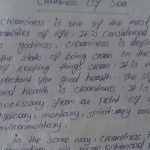 Cleanliness Of Sea
cleanliness is one of the most
qualities of life. It is considered
to godliness. cleanliness is
the state of being clean or the
of keeping things clean. It is
important for good health. The
good health is cleanliness. It is
necessary from an point of
physically, mentally, spiritually and
environmentally.
In the same way, cleanliness